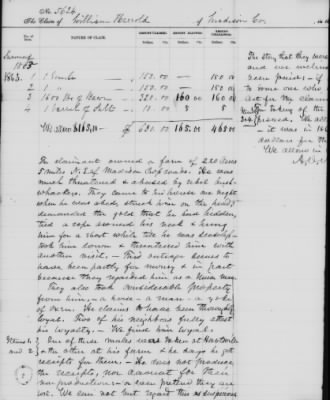 No. 5624.
The Claim of William Herold of Madison Co
NATURE OF CLAIM.
AMOUNT CLAIMED.
AMOUNT ALLOWED.
AMOUNT DISALLOWED.
Dollars. Cts. Dollars. Cts. Dollars. Cts.
1863. 1 1 mule 150.00 — 150.00
2 1 " 150.00 — 150.00
3 1600 lbs of Bacon 320.00 160.00 160.00
4 1 barrel of Salt 10 5 5
We allow $165.00 630.00 165.00 465.00
The claimant owned a farm of 220 acres
5 miles N.E. of Madison Ala. He was
much threatened & abused by rebel bush-
whackers. They came to his house one night
when he was abed, struck him on the head,
demanded the gold that he had hidden,
tied a rope around his neck & hung
him for a short while till he was
took him down & threatened him with
another visit. — This outrage seems to
have been partly for money & in part
because they regarded him as a Union man.
They also took considerable property
from him, — a horse — a mare — a yoke
of oxen. He claims to have been thoroughly
loyal. Two of his neighbors fully attest
his loyalty. — We find him loyal.
Items 1 One of these mules was taken at Huntsville
and 2 & the other at his farm & he says he got
receipts for them. — He does not produce
the receipts, nor account for their
non production, — or even pretend they are
lost. We can not but regard this as suspicious
The story that they were
and was
been
to some one who
act for
taking of the
— it was in 186
dollars for the
We allow in